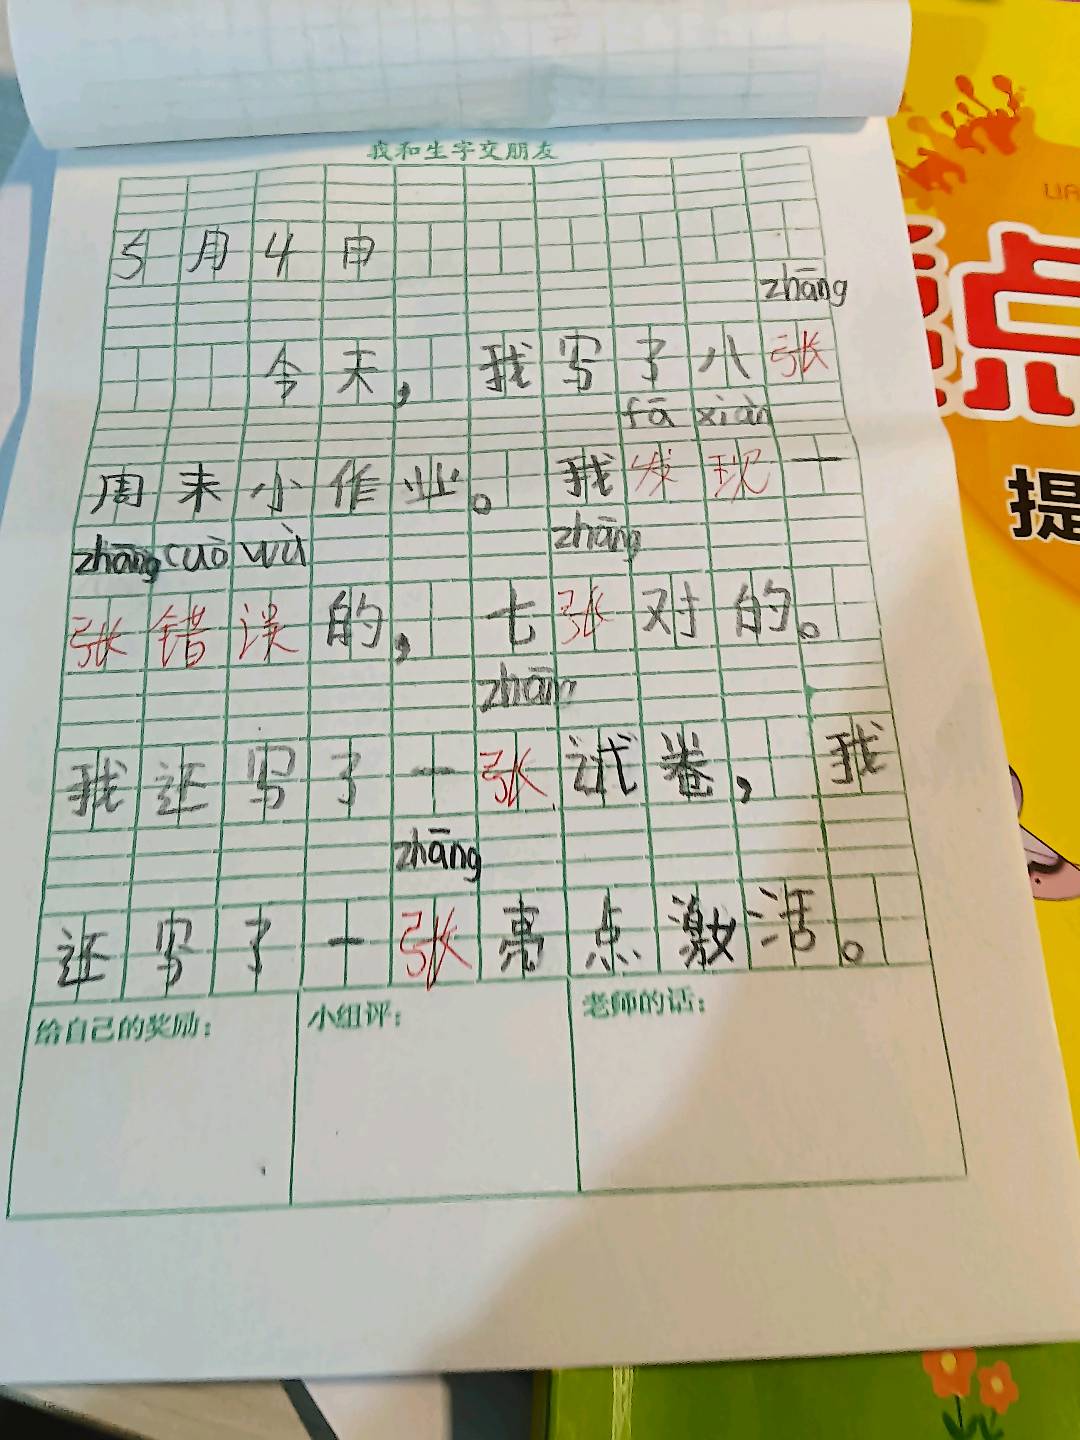 我和生字交朋友
5月4日
zhāng
今天，我写了八张
fā xiàn
周末小作业。我发现一
zhāng cuò wù zhāng
张错误的，七张对的。
zhāng
我还写了一张试卷，我
zhāng
还写了一张亮点激活。
给自己的奖励： 小组评： 老师的话：
LIA
点
提